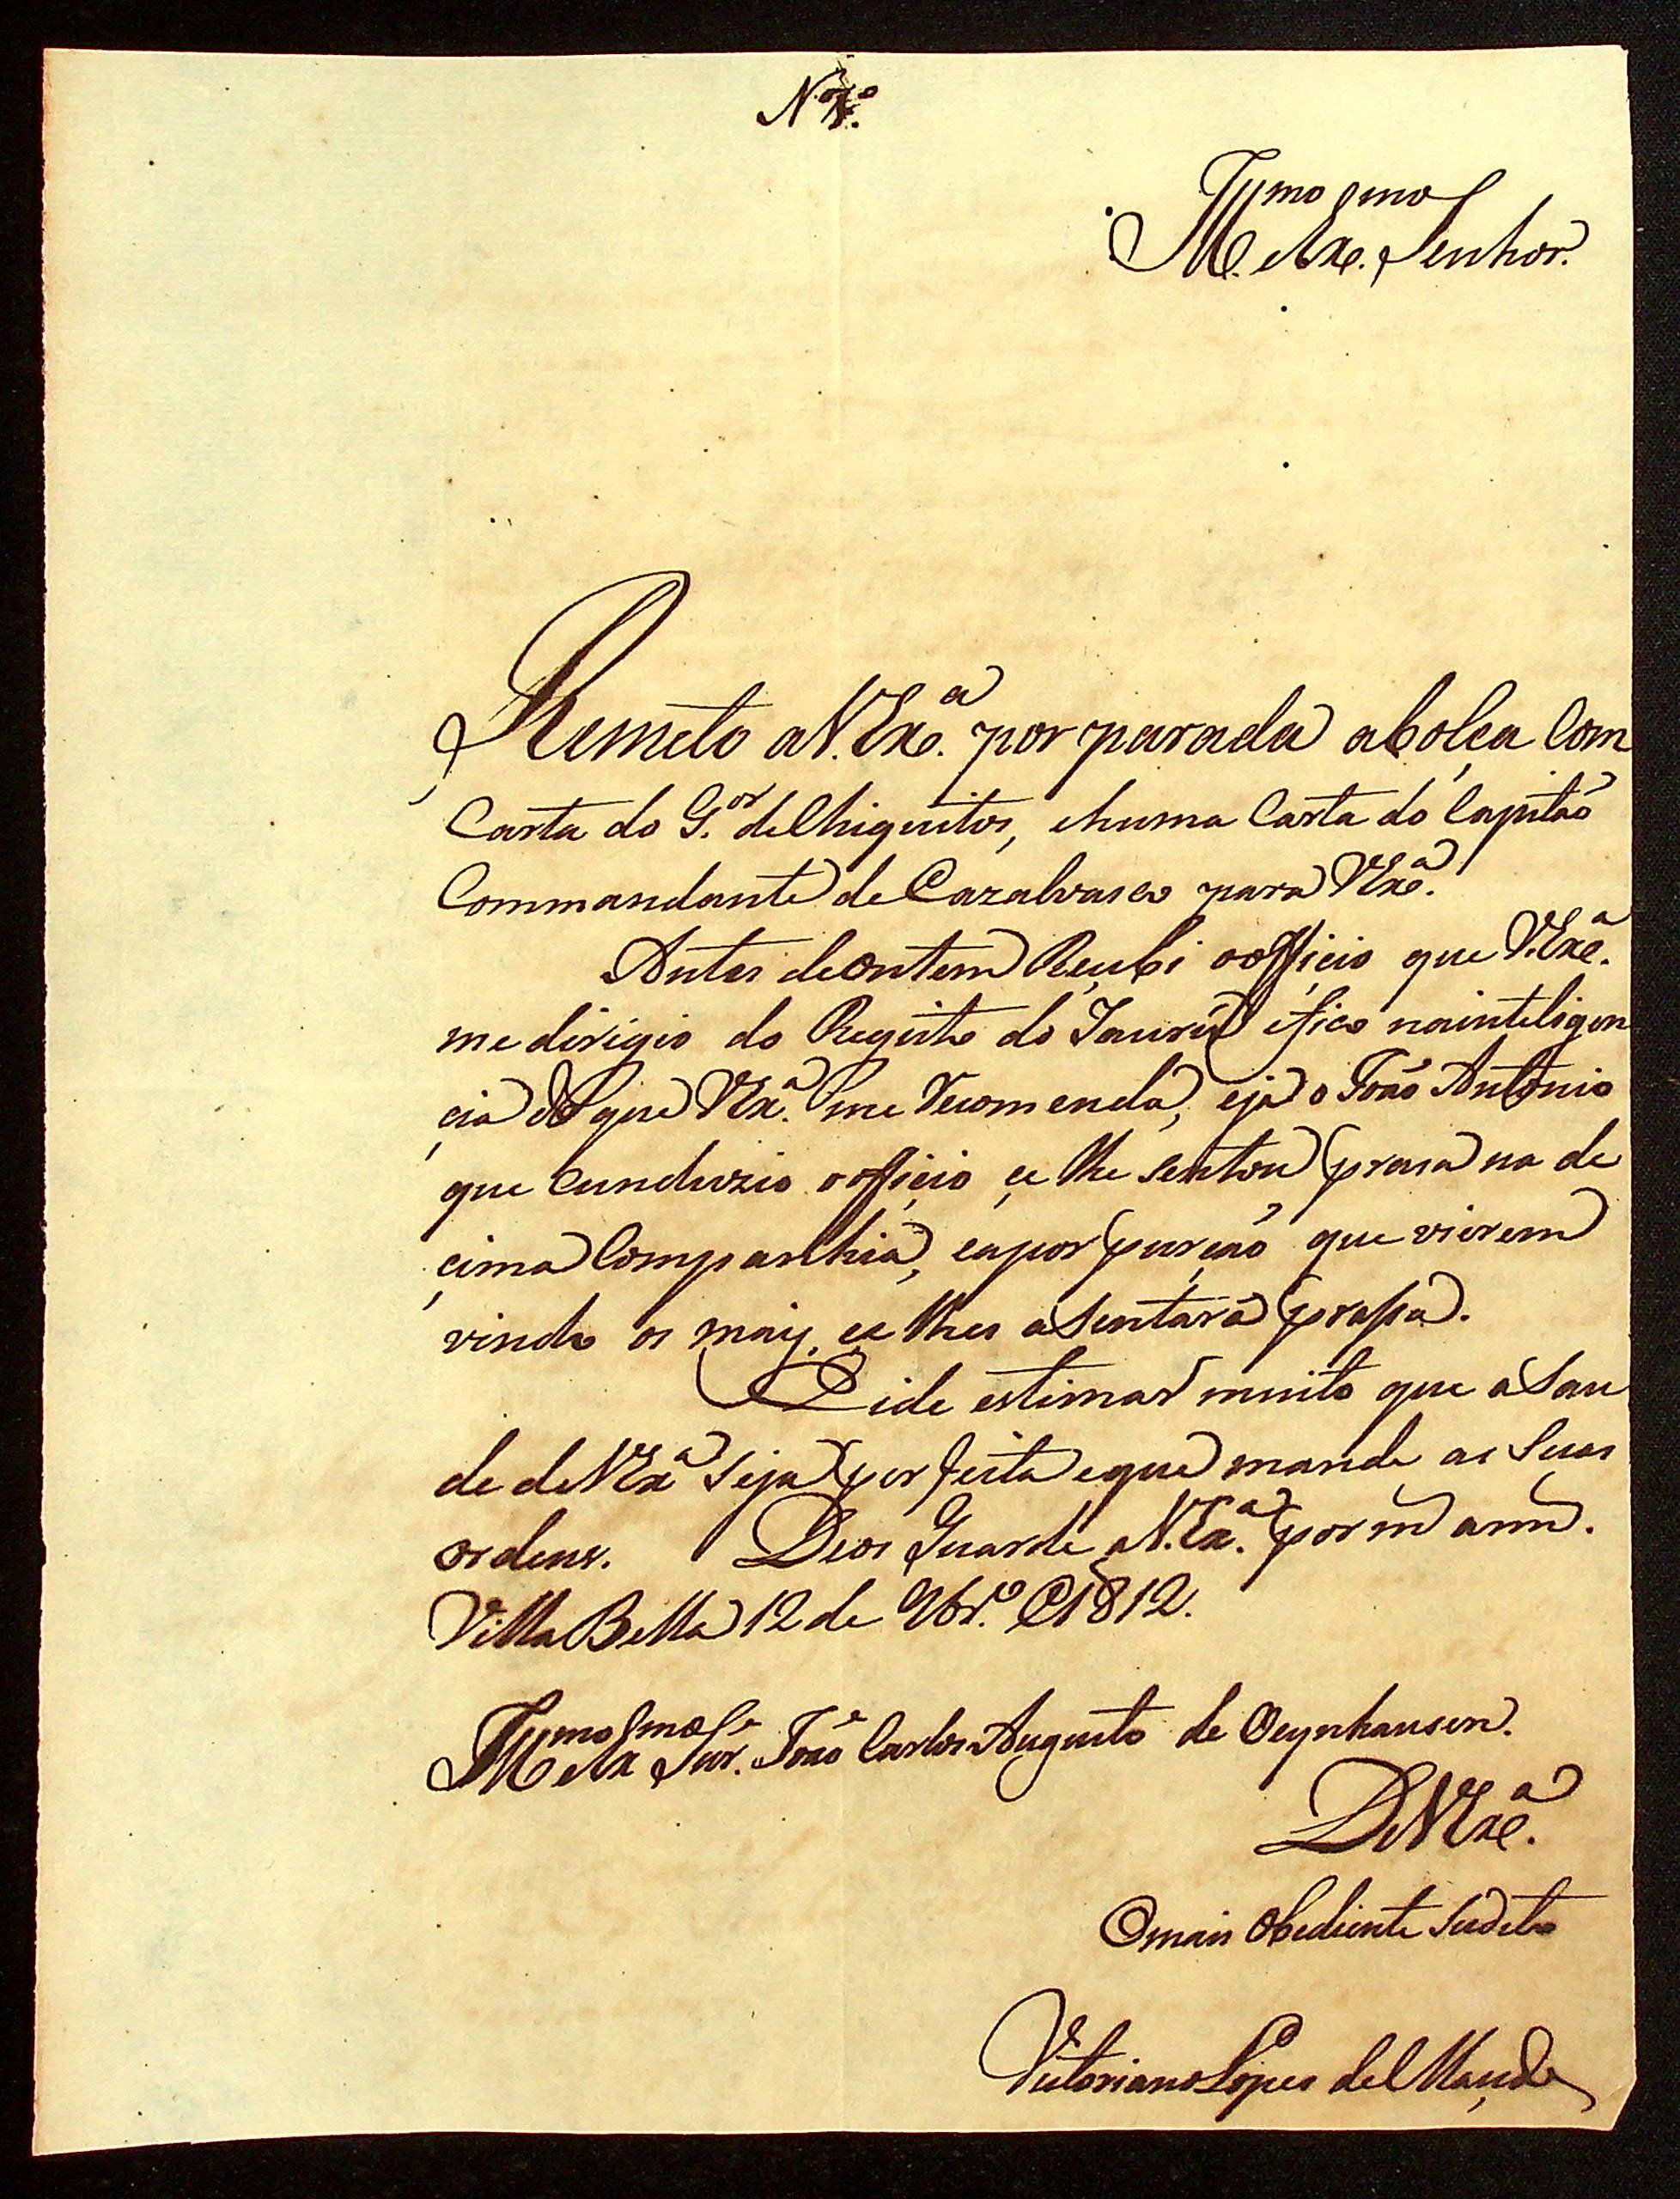 N.º 7.º
Illmo. e Exmo. Senhor.
Remeto a V. Exc.ª por parada abolça Com
Carta do G.or de Chiquitos, e huma Carta do Capitaõ
Commandante de Cazalvasco para VExc.ª
Antes deontem Reçubi oofficio que V.Exc.ª
me dirigio do Registo do Jaurú efico nainteligen
cia do que VEx.ª me recomenda, eja o Joaõ Antonio
que Cunduzio oofficio çe lhe sentou prasa na de
cima Companhia, eapor purçaõ que vierem
vindo os mais, çe lhes aSentará prassa.
Eide estimar muito que aSau
de deVEx.ª Seja perfeita eque mande as Suas
ordens. Deos Guarde aV.Ex.ª por m ann.
Villa Bella 12 de 9br.º @ 1812.
Illmo e Exmo Snr. Joaõ Carlos Augusto de Oeynhausen.
DeVExc.ª
Omais Obediente Sudito
Victoriano Lopes de Maçedo